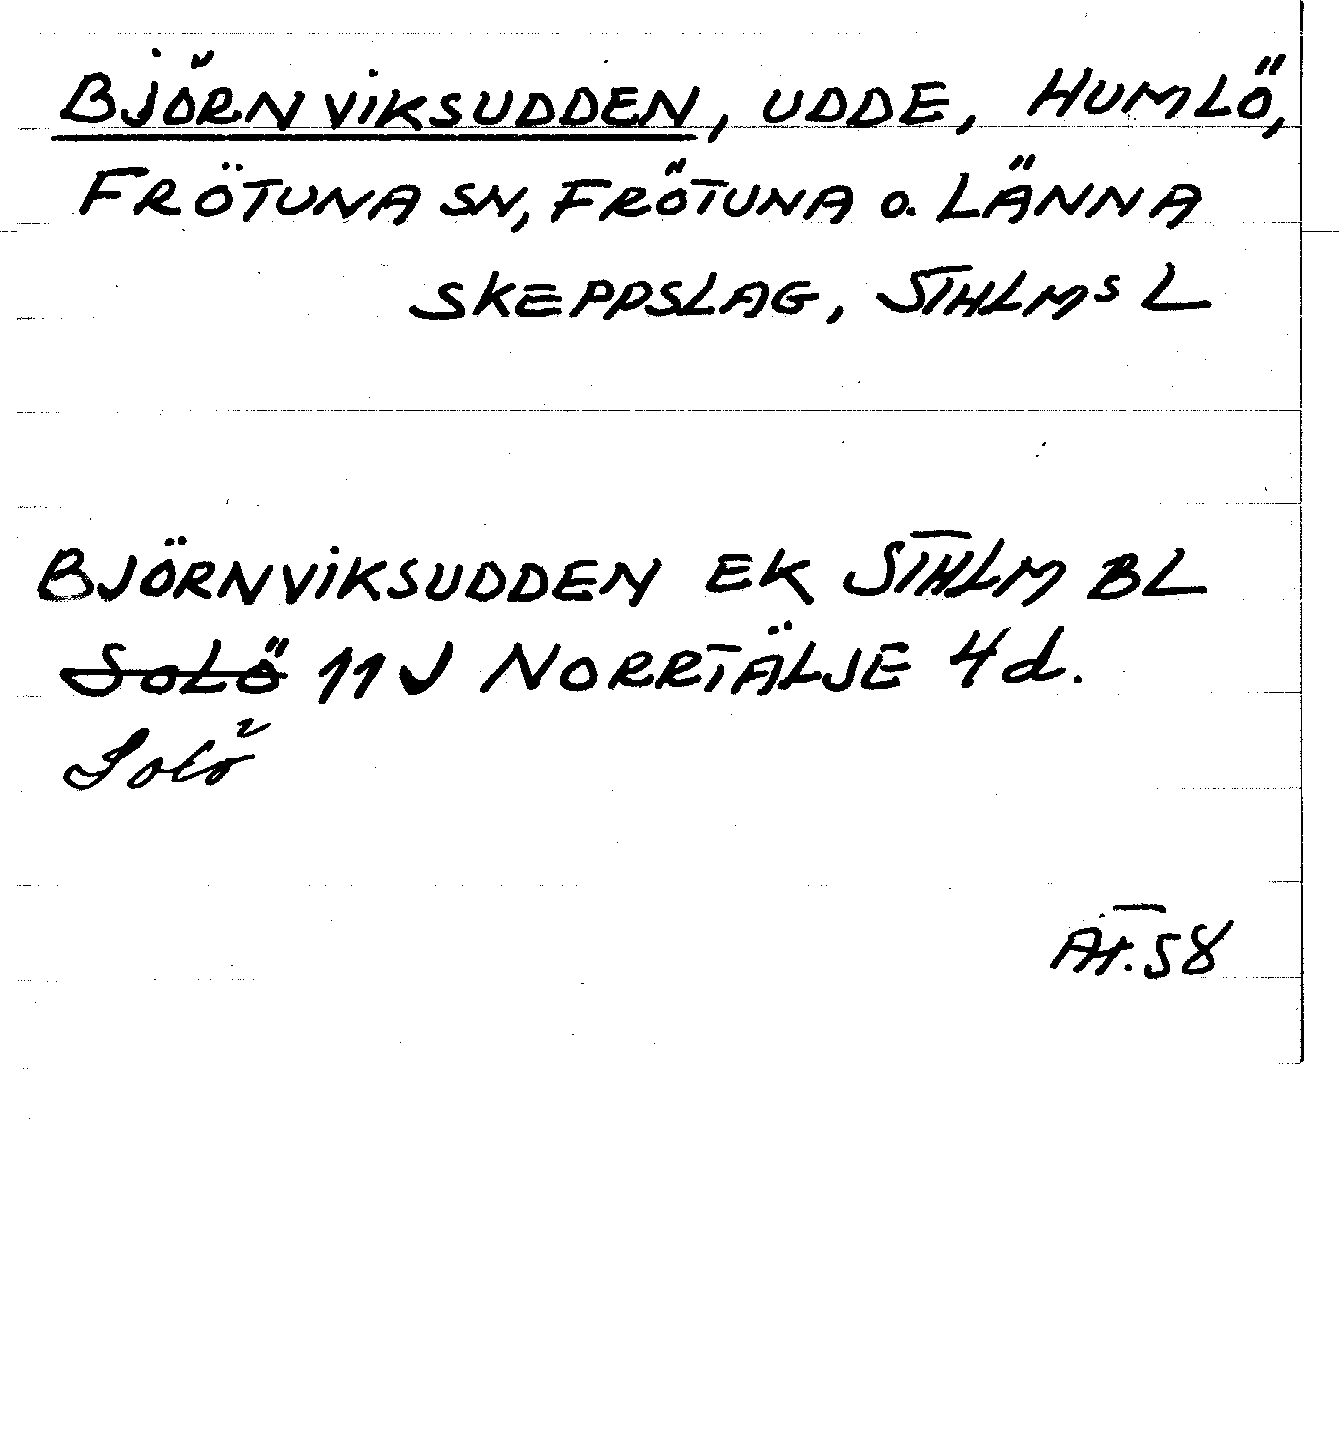 BJÖRNVIKSUDDEN, UDDE, HUMLÖ,
FRÖTUNA SN, FRÖTUNA o. LÄNNA
SKEPPSLAG, STHLMS L
BJÖRNVIKSUDDEN EK STHLM BL
SOLÖ 11 J NORRTÄLJE 4d.
Solö
At. 58